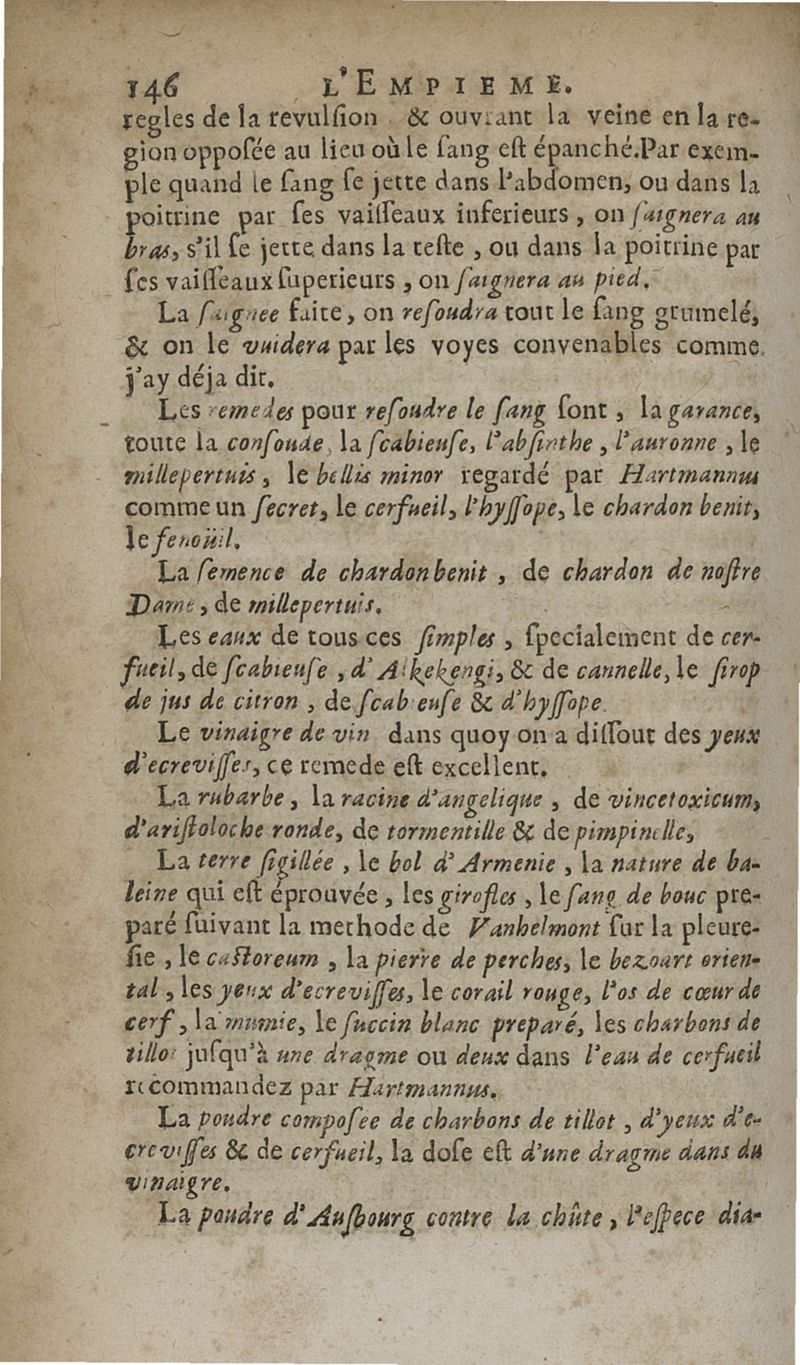 146 L'EMPIEME.
regles de la revulſion & ouvrant la veine en la re-
gion oppoſée au lieu où le ſang eſt épanché.Par exem-
ple quand le ſang ſe jette dans l'abdomen, ou dans la
poitrine par ſes vaiſſeaux inferieurs, on ſaignera au
bras, s'il ſe jette dans la teſte, ou dans la poitrine par
ſes vaiſſeaux ſuperieurs, on ſaignera au pied.
La ſaignee faite, on reſoudra tout le ſang grumelé,
& on le vuidera par les voyes convenables comme
j'ay déja dit.
Les remedes pour reſoudre le ſang ſont, la garance,
toute la conſoude, la ſcabieuſe, l'abſinthe, l'auronne, le
millepertuis, le bellis minor regardé par Hartmannus
comme un ſecret, le cerfueil, l'hyſſope, le chardon benit,
le fenoüil.
La ſemence de chardon benit, de chardon de noſtre
Dame, de millepertuis.
Les eaux de tous ces ſimples, ſpecialement de cer-
fueil, de ſcabieuſe, d'Alkekengi, & de cannelle, le ſirop
de jus de citron, de ſcabieuſe & d'hyſſope.
Le vinaigre de vin dans quoy on a diſſout des yeux
d'ecreviſſes, ce remede eſt excellent.
La rubarbe, la racine d'angelique, de vincetoxicum,
d'ariſtoloche ronde, de tormentille & de pimpinelle,
La terre ſigillée, le bol d'Armenie, la nature de ba-
leine qui eſt éprouvée, les girofles, le ſang de bouc pre-
paré ſuivant la methode de Vanhelmont ſur la pleure-
ſie, le caſtoreum, la pierre de perches, le bezoart orien-
tal, les yeux d'ecreviſſes, le corail rouge, l'os de cœur de
cerf, la mumie, le ſuccin blanc preparé, les charbons de
tillot juſqu'à une dragme ou deux dans l'eau de cerfueil
recommandez par Hartmannus.
La poudre compoſee de charbons de tillot, d'yeux d'e-
creviſſes & de cerfueil, la doſe eſt d'une dragme dans du
vinaigre.
La poudre d'Auſbourg contre la chûte, l'eſpece dia-